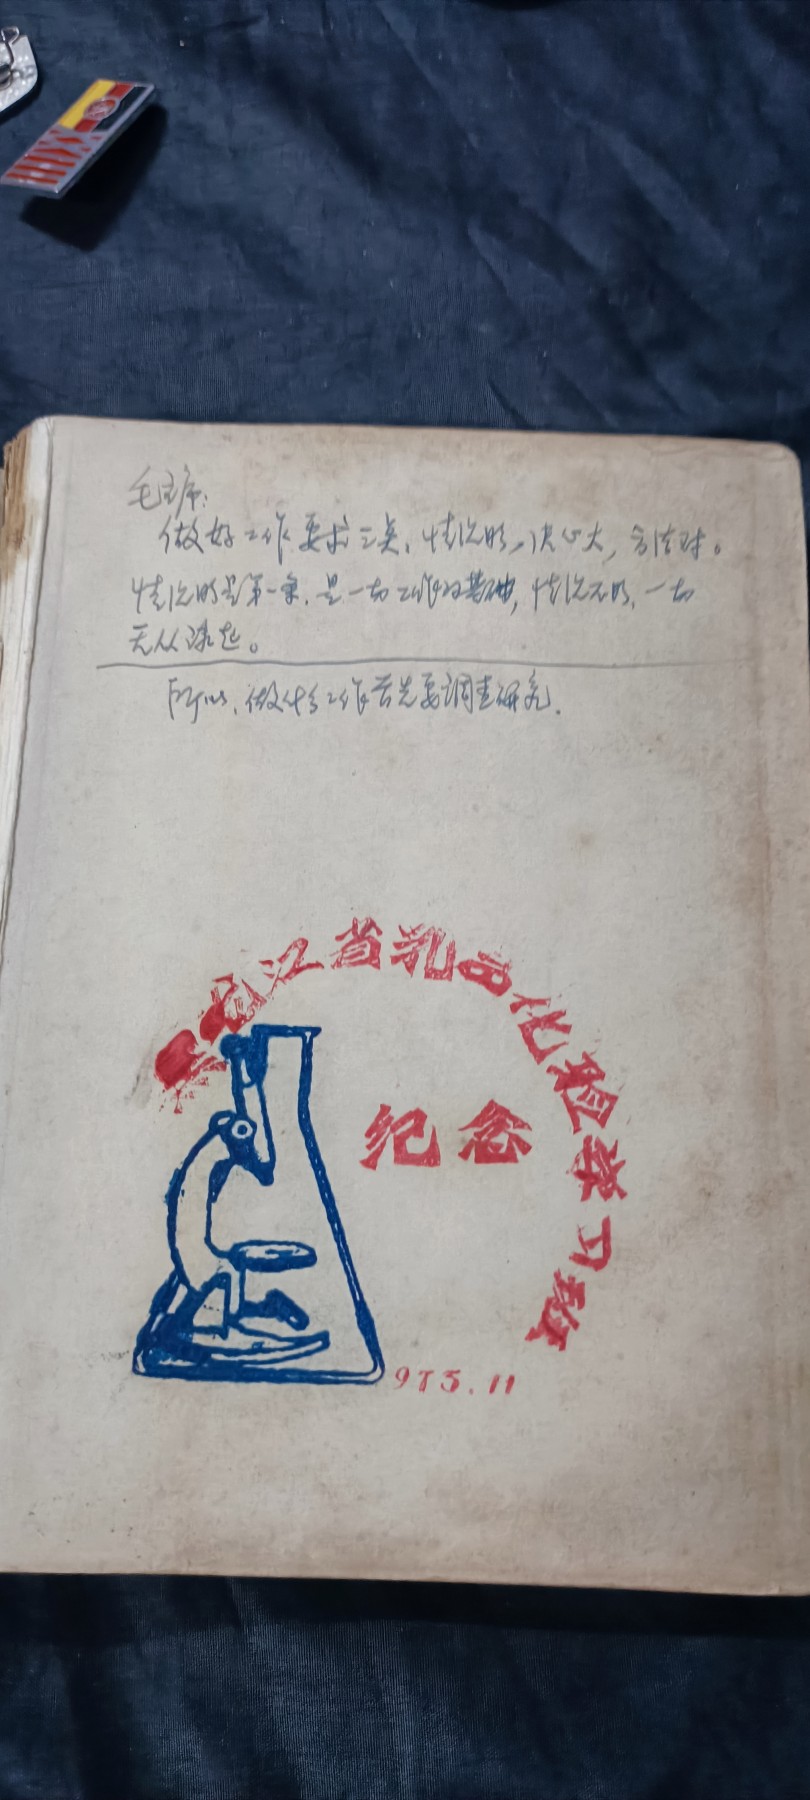 毛主席:
做好工作要求三条，情况明，决心大，方法对。
情况明是第一条，是一切工作的基础，情况不明，一切
无从谈起。
所以，做什么工作首先要调查研究.
黑龙江省乳品化验学习班
纪念
975.11